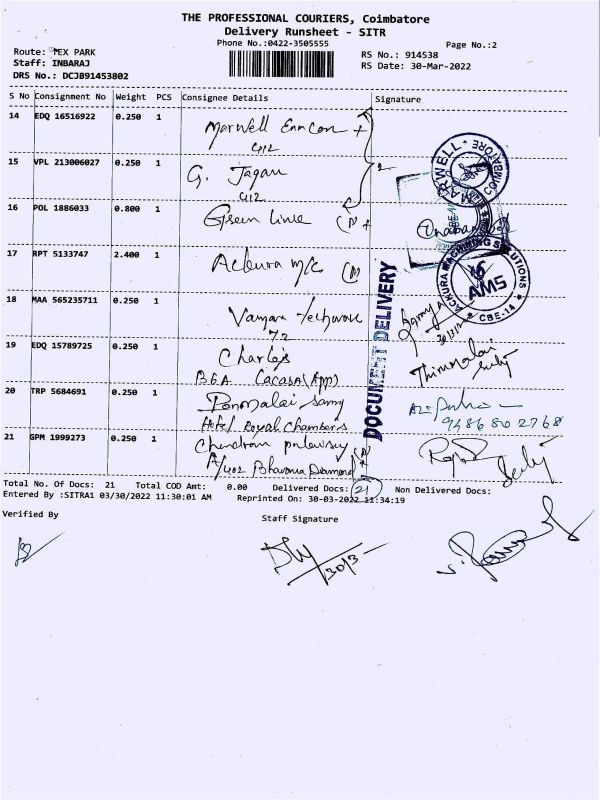 THE PROFESSIONAL COURIERS, Coimbatore
Delivery Runsheet - SITR
Phone No.:0422-3505555
Page No.:2
Route: TEX PARK
Staff: INBARAJ
DRS No.: DCJB91453802
RS No.: 914538
RS Date: 30-Mar-2022
S No Consignment No Weight PCS Consignee Details Signature
14 EDQ 16516922 0.250 1 Marwell Enncon
412
15 VPL 213006027 0.250 1 G. Jagan
412
16 POL 1886033 0.800 1 Green line
17 RPT 5133747 2.400 1 Ackura m/c
18 MAA 565235711 0.250 1
72
19 EDQ 15789725 0.250 1 Charles
B6A Cacasa (App)
20 TRP 5684691 0.250 1 Ponmalai Samy
Hotel Royal Chambers
21 GPM 1999273 0.250 1 Chendram
A/402 Bhavana Diamond
MARWELL
COIMBATORE
ACKURA MACHINING SOLUTIONS
AMS
CBE-14
DOCUMENT DELIVERY
Thirumalai
9486802768
Total No. Of Docs: 21 Total COD Amt: 0.00 Delivered Docs: 21 Non Delivered Docs:
Entered By :SITRA1 03/30/2022 11:30:01 AM Reprinted On: 30-03-2022 11:34:19
Verified By
Staff Signature
30/3